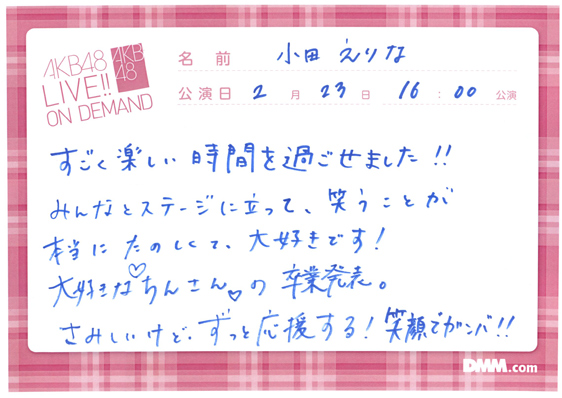 AKB48
LIVE!!
ON DEMAND
AKB
48
名前 小田えりな
公演日 2月23日 16:00 公演
すごく楽しい時間を過ごせました!!
みんなとステージに立って、笑うことが
本当にたのしくて、大好きです!
大好きな♡ちんさん♡の卒業発表。
さみしいけど、ずっと応援する!笑顔でガンバ!!
DMM.com